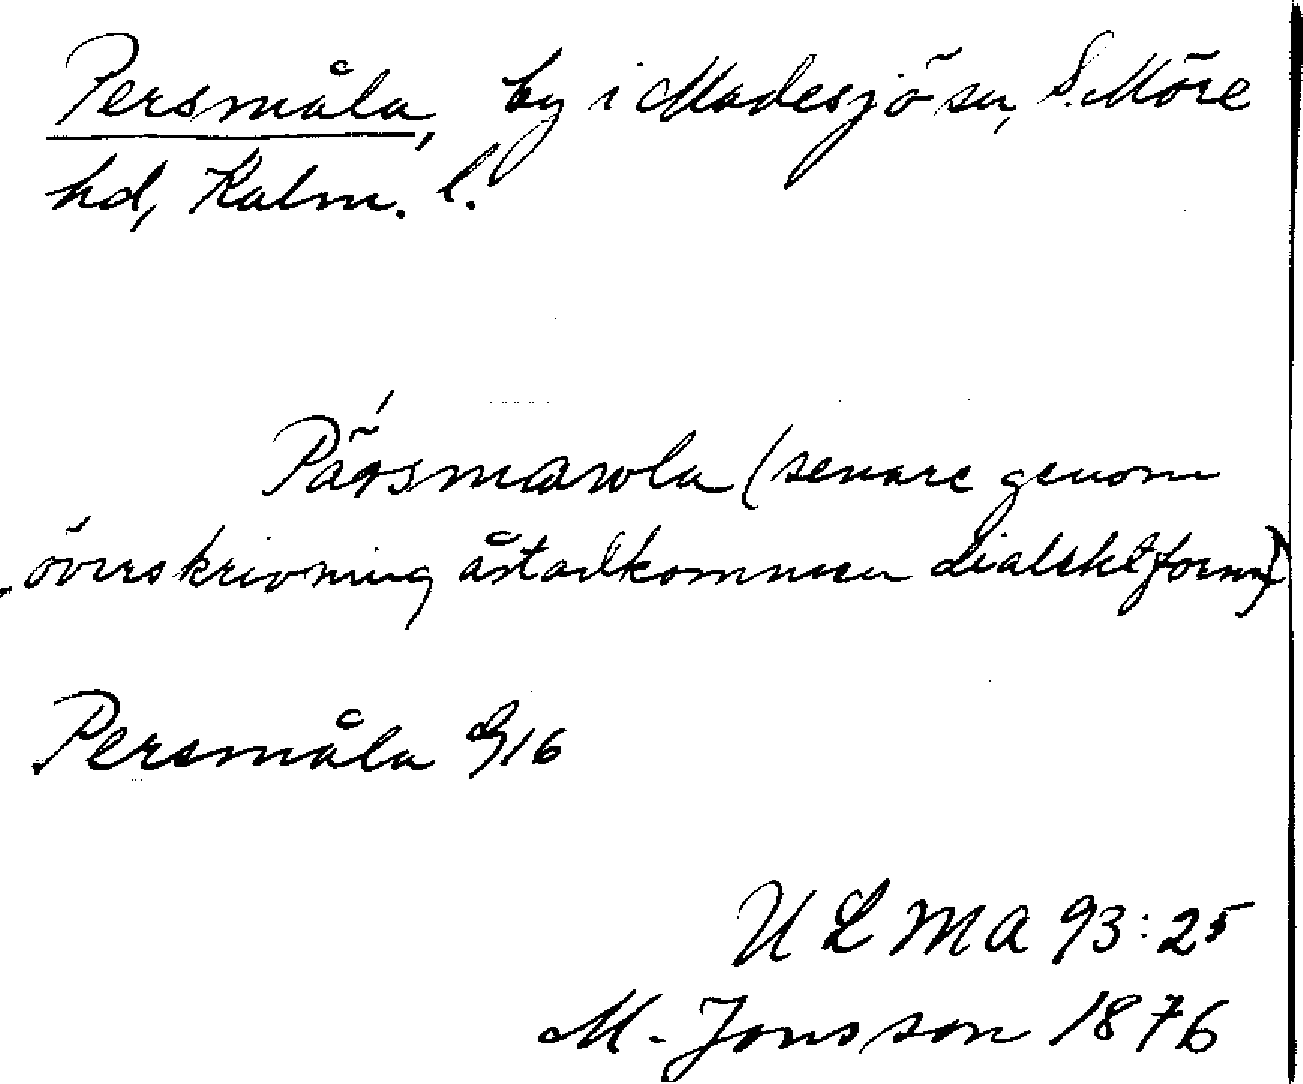 Persmåla, by i Madesjö sn, S. Möre
hd, Kalm. l.
Pä́rsmawla (senare genom
överskrivning åstadkommen dialektform)
Persmåla G16
ULMA 93:25
M. Jonsson 1876